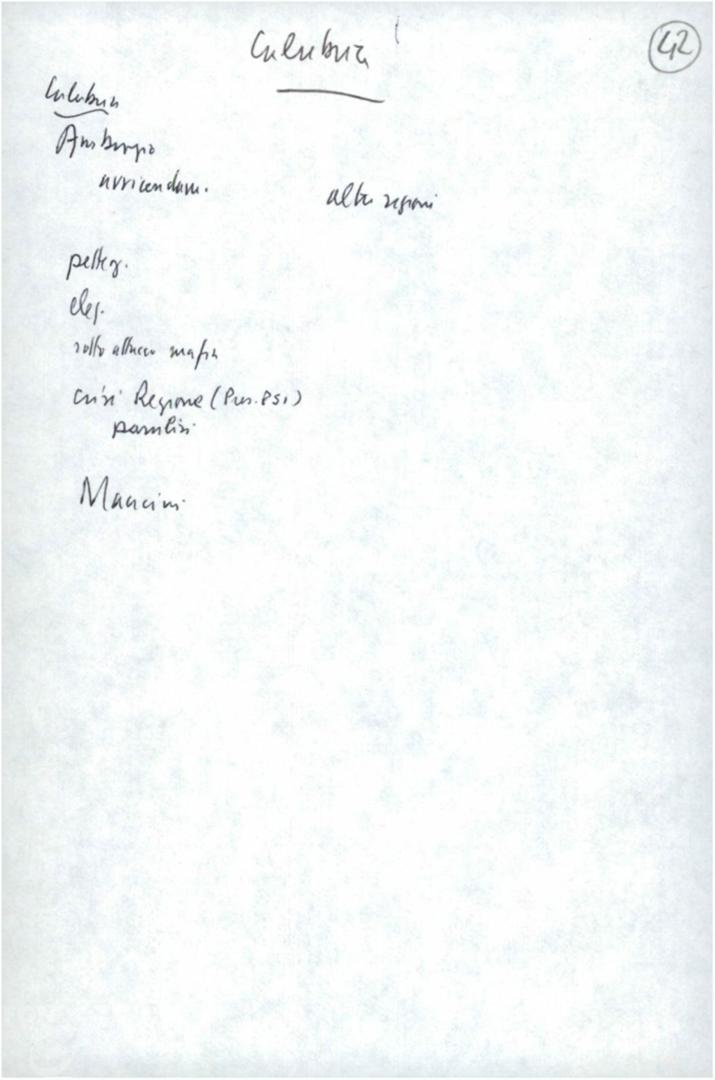 Calabria
42
Calabria
Ambrogio
avvicendam.
altre regioni
pettez.
eleg.
sotto attacco mafia
crisi Regione (Pres. PSI)
paralisi
Mancini